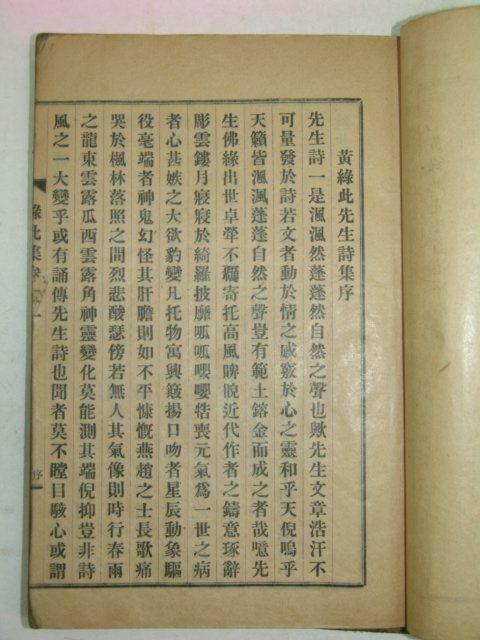 黃綠此先生詩集序
先生詩一是渢渢然蓬蓬然自然之聲也歟先生文章浩汗不
可量發於詩若文者動於情之感竅於心之靈和乎天倪鳴乎
天籟皆渢渢蓬蓬自然之聲豈有範土鎔金而成之者哉噫先
生佛緣出世卓犖不羈寄托高風睥睨近代作者之鑄意琢辭
彫雲鏤月寢寢於綺羅披靡呱呱嚶嚶牿喪元氣爲一世之病
者心甚嫉之大欲豹變凡托物寓興簸揚口吻者星辰動象驅
役毫端者神鬼幻怪其肝膽則如不平慷慨燕趙之士長歌痛
哭於楓林落照之間烈悲酸瑟傍若無人其氣像則時行春雨
之龍東雲露瓜西雲露角神靈變化莫能測其端倪抑豈非詩
風之一大變乎或有誦傳先生詩也聞者莫不瞠目駭心或謂
綠此集 一
序